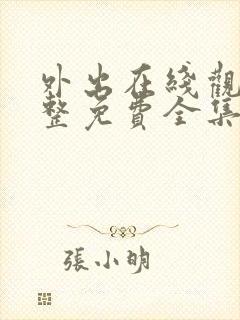 外出在綫觀
整免費全集
張小明